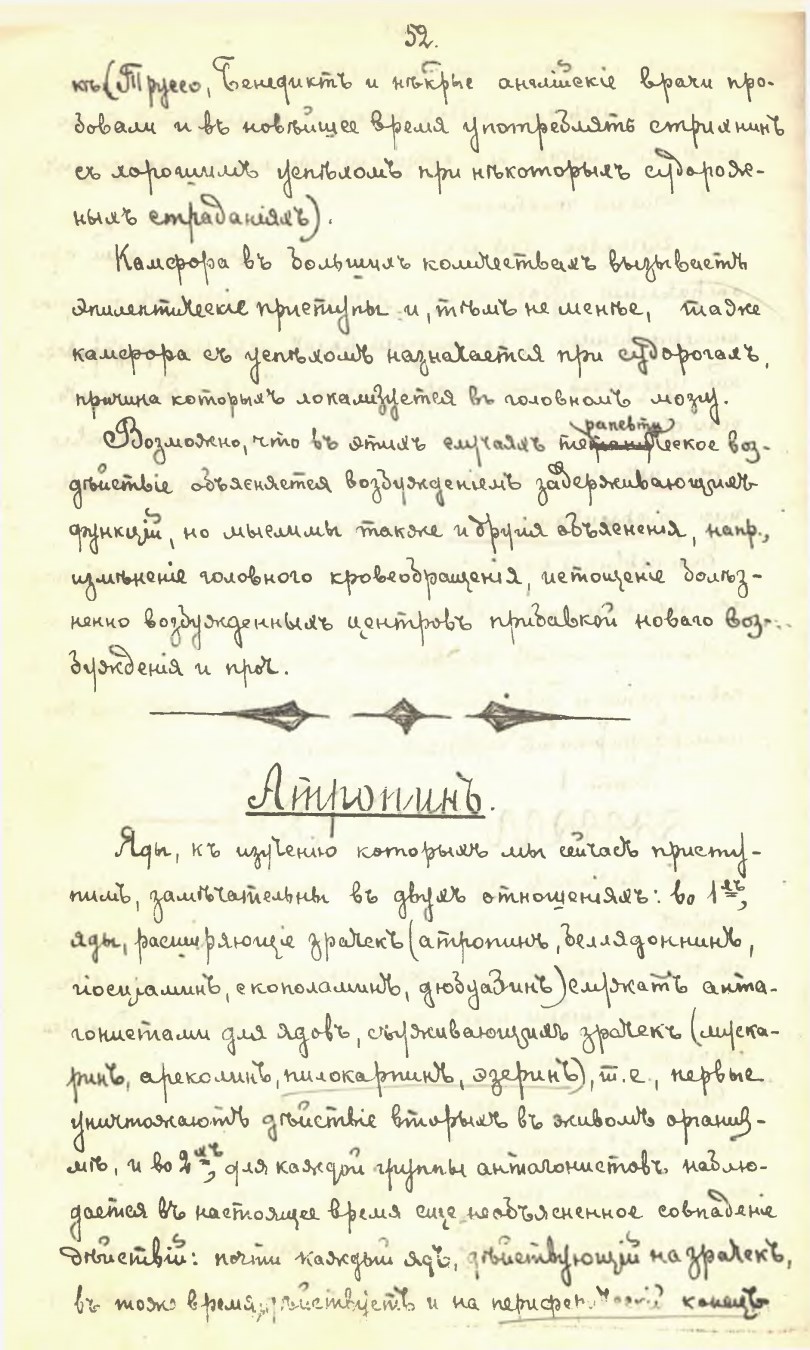 52.
къ (Труссо, Бенедиктъ и нѣкрые англійскіе врачи про-
бовали и въ новѣйщее время употреблять стрихнинъ
съ хорошимъ успѣхомъ при нѣкоторыхъ судорож-
ныхъ страданіяхъ).
Камфора въ большихъ количествахъ вызываетъ
эпилептическіе приступы и, тѣмъ не менѣе, также
камфора съ успѣхомъ назначается при судорогахъ,
причина которыхъ локализуется въ головномъ мозгу.
рапевти
Возможно, что въ этихъ случаяхъ теческое воз-
дѣйствіе объясняется возбужденіемъ задерживающихъ
функцій, но мыслимы также и другія объясненія, напр.,
измѣненіе головного кровеобращенія, истощеніе болѣз-
ненно возбужденныхъ центровъ прибавкой новаго воз-
бужденія и проч.
Атропинъ.
Яды, къ изученію которыхъ мы сейчасъ присту-
пимъ, замѣчательны въ двухъ отношеніяхъ: во 1хъ,
яды, расширяющіе зрачекъ (атропинъ, белладоннинъ,
гіосціаминъ, скополаминъ, дюбуазинъ) служатъ анта-
гонистами для ядовъ, съуживающихъ зрачекъ (муска-
ринъ, ареколинъ, пилокарпинъ, эзеринъ), т.е., первые
уничтожаютъ дѣйствіе вторыхъ въ живомъ организ-
мѣ, и во 2хъ, для каждой группы антагонистовъ наблю-
дается въ настоящее время еще необъясненное совпаденіе
дѣйствій: почти каждый ядъ, дѣйствующій на зрачекъ,
въ тоже время дѣйствуетъ и на конецъ